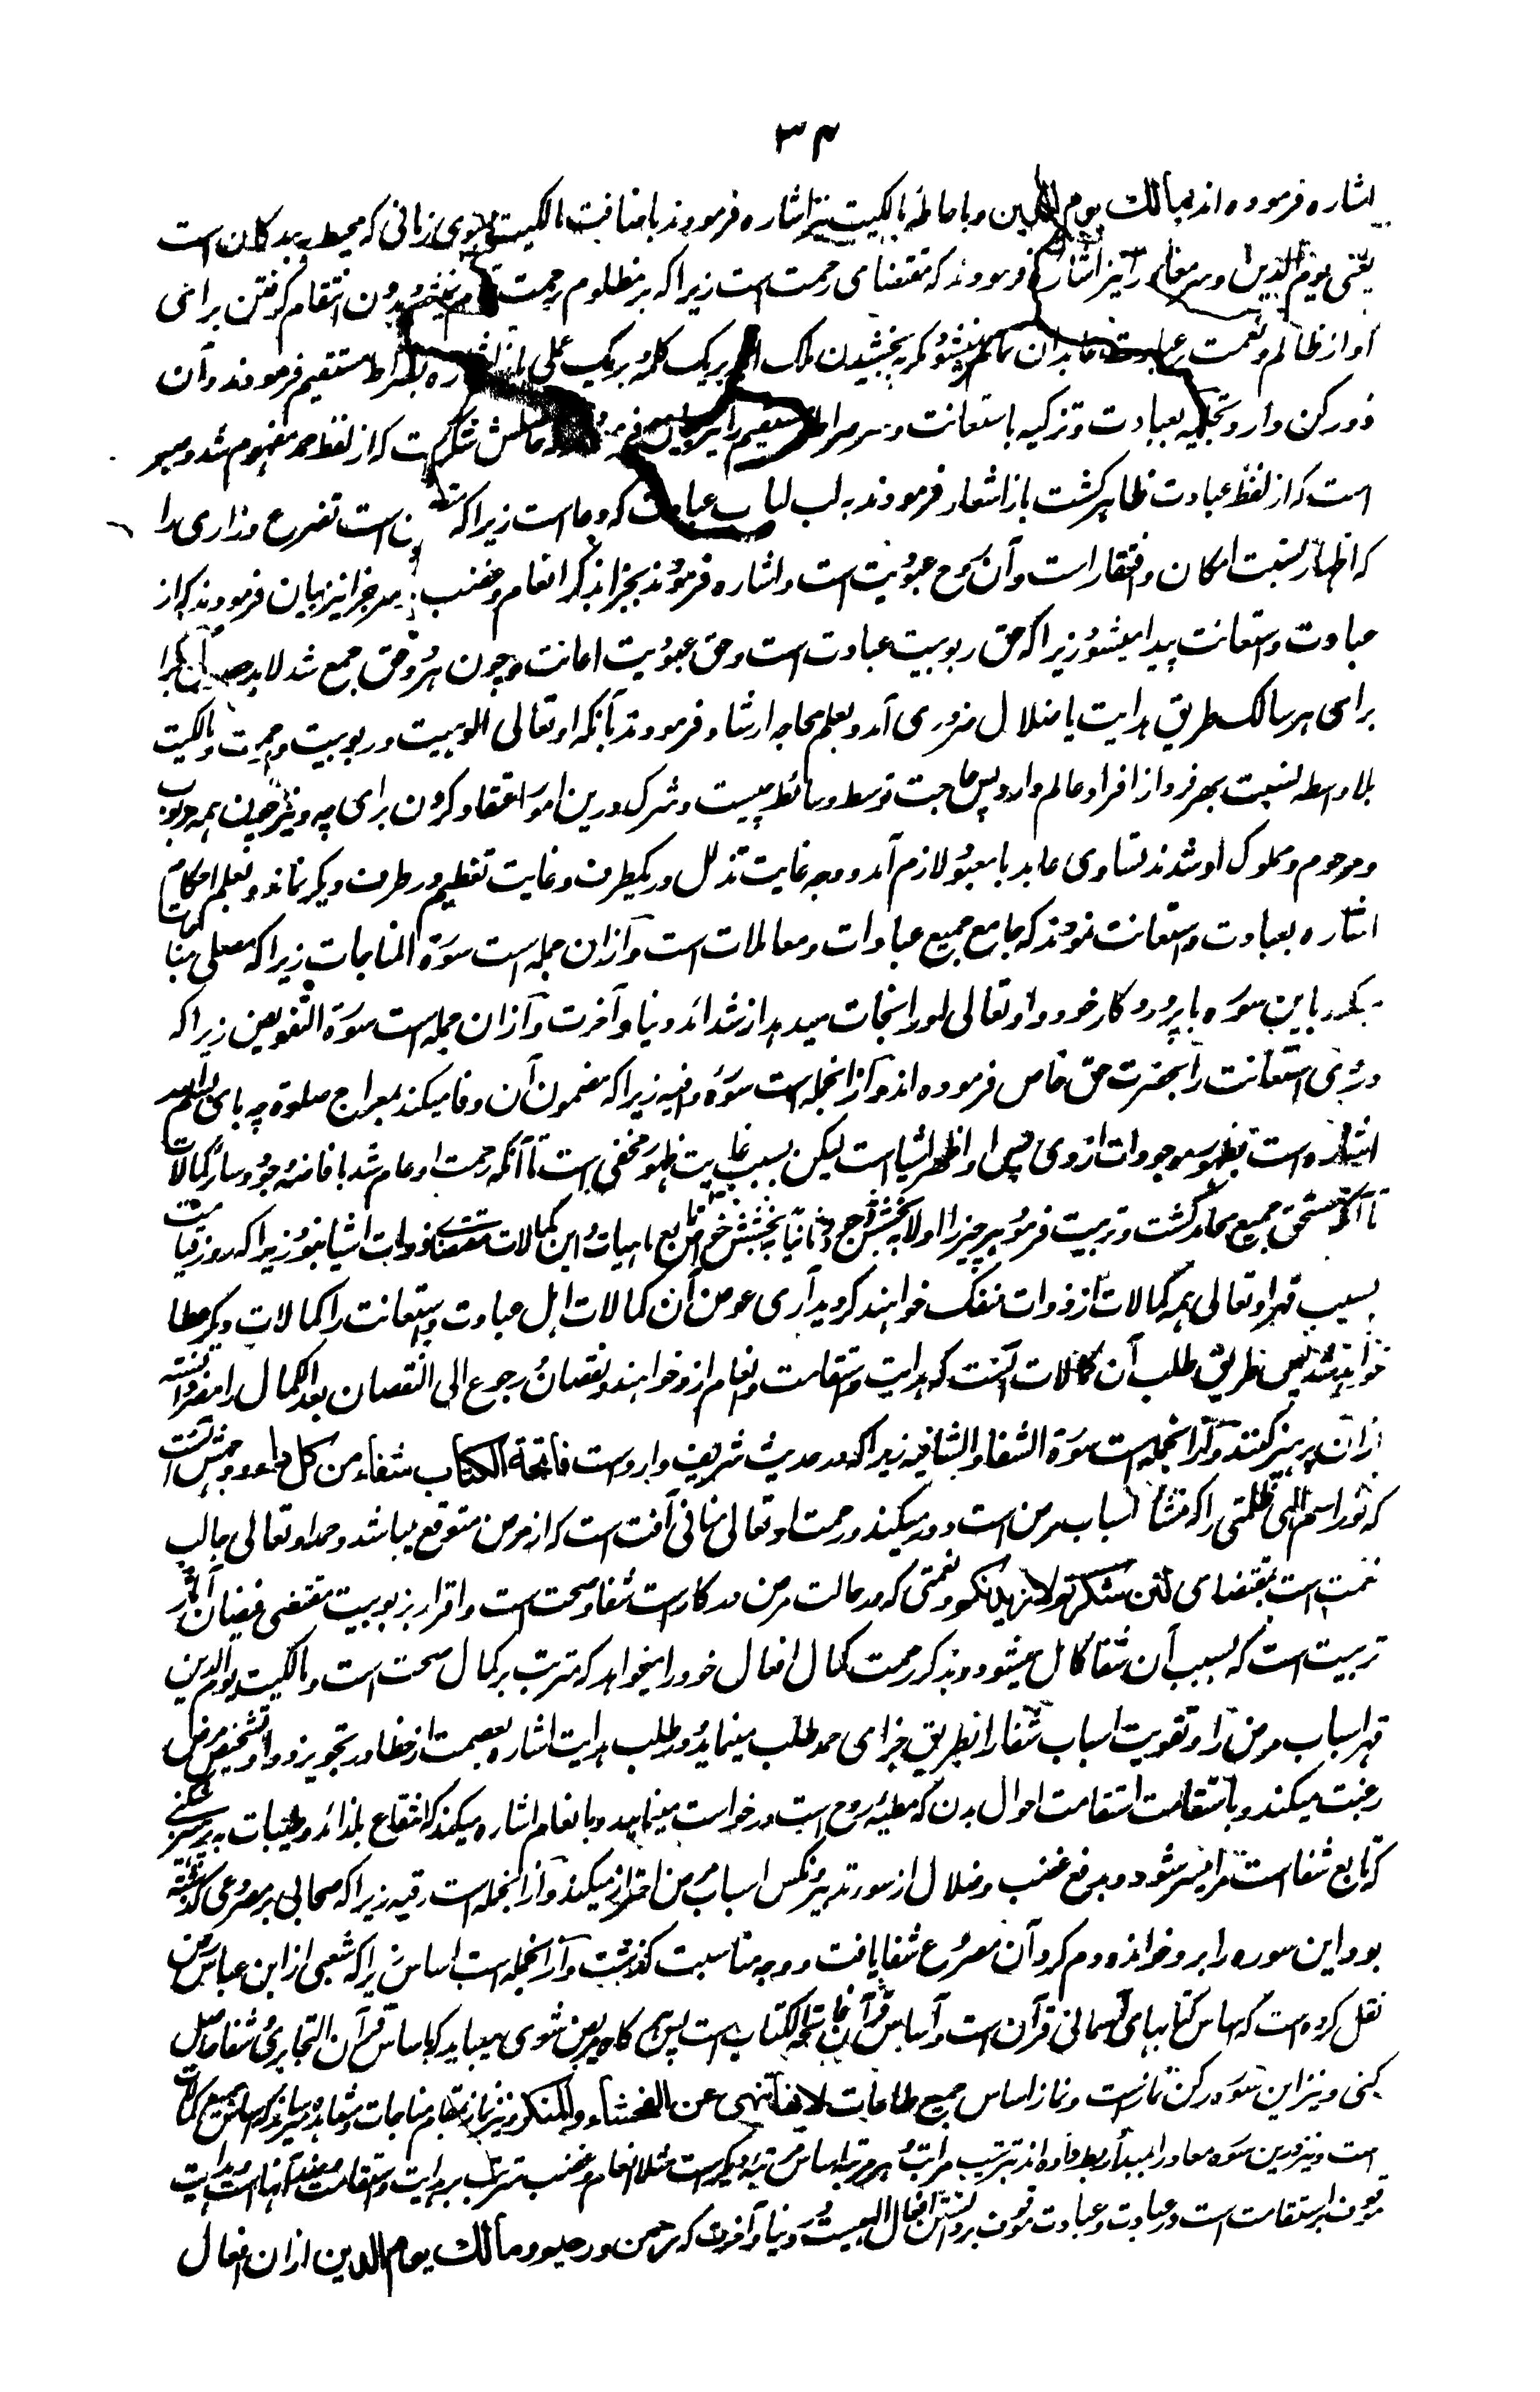 ۳۴
اشاره فرموده اند بمالك يوم الدين و باحاطهٔ مالکیت نیز اشاره فرمودند باضافت مالکیت بسوی زمانی که محیط به بدکاران است
یعنی یوم الدین و سر معاد را نیز اشاره فرمودند که مقتضای رحمت است زیرا که بر مظلوم رحمت تام نمیشود بدون انتقام گرفتن برای
او از ظالم و نعمت عبادت عابدان تمام نمیشود مگر به بخشیدن ملک ابد بر یک کلمه بر یک عملی باز اشاره بصراط مستقیم فرمودند و آن
دو رکن دارد تجلیه بعبادت و تزکیه باستعانت و سر صراط مستقیم را نیز بیان فرمودند که حاصلش شکر است که از لفظ حمد مفهوم شد و صبر
است که از لفظ عبادت ظاهر گشت باز اشعار فرمودند به لب لباب عبادت که دعا است زیرا که است تضرع و زاری را
که اظهار نسبت امکان و افتقار است و آن روح عبودیت است و اشاره فرمودند بجزا بذکر انعام و غضب و سر جزا نیز بیان فرمودند که از
عبادت و استعانت پیدا میشود زیرا که حق ربوبیت عبادت است و حق عبودیت اعانت و چون هر دو حق جمع شد لابد
برای هر سالک طریق هدایت یا ضلال ضروری آمد و بعلم محاجه ارشاد فرمودند بآنکه او تعالی الوهیت و ربوبیت و رحمت و مالکیت
بلا واسطه نسبت بهر فرد از افراد عالم دارد پس حاجت توسط وسائط چیست و شرک درین امور اعتقاد کردن برای چه و نیز چون همه مربوب
و مرحوم و مملوک او شدند تساوی عابد با معبود لازم آمد و وجه غایت تذلل در یکطرف و غایت تعظیم در طرف دیگر نماند و بعلم احکام
اشاره بعبادت و استعانت نمودند که جامع جمیع عبادات و معاملات است و ازان جمله است سورة المناجات زیرا که مصلی مناجات
میکند باین سوره با پروردگار خود و او تعالی او را نجات میدهد از شدائد دنیا و آخرت و ازان جمله است سورة التفویض زیرا که
درینجا استعانت را بحضرت حق خاص فرموده اند و از انجمله است سوره وافیه زیرا که مضمون آن وفا میکند بمعراج صلوة چه بای بسم الله
اشاره است بظهور موجودات از وی پس او اظهر اشیا است لیکن بسبب غایت ظهور مخفی است تا آنکه رحمت او عام شد بافاضهٔ وجود و سائر کمالات
تا آنکه مستحق جمیع محامد گشت و تربیت فرمود هر چیز را اولا به بخشش و ثانیا به بخشش تابع ماهیات و این کمالات مقتضای ذوات اشیا نبود زیرا که روز قیامت
بسبب قهر او تعالی همه کمالات از ذوات منفک خواهند گردید آری عوض آن کمالات اهل عبادت و استعانت را کمالات دیگر عطا
خواهد شد پس طریق طلب آن کمالات آنست که هدایت و استقامت و انعام از و خواهند و نقصان رجوع الی النقصان بعد الکمال را مضر دانسته
ازان پرهیز کنند و از انجمله است سورة الشفا و الشافیه زیرا که در حدیث شریف وارد است فاتحة الكتاب شفاء من كل داء و وجهش آنست
که نور اسم الهی ظلمتی را که منشأ اسباب مرض است دور میکند و رحمت او تعالی منافی آفت است که از مرض متوقع میباشد و حمد او تعالی جالب
نعمت است بمقتضای لئن شكرتم لازيدنكم و نعمتی که در حالت مرض در کار است شفا و صحت است و اقرار بربوبیت مقتضی فیضان آثار
تربیت است که بسبب آن شفا کامل میشود و بذکر رحمت کمال افعال خود را میخواهد که مترتب بر کمال صحت است و مالکیت یوم الدین
قهر اسباب مرض را و تقویت اسباب شفا را بطریق جزای حمد طلب مینماید و در طلب هدایت اشاره بعصمت از خطا در تجویز دوا و تشخیص مرض
رغبت میکند و باستقامت استقامت احوال بدن که مطیهٔ روح است درخواست مینماید و بانعام اشاره میکند که انتفاع بلذائد و طیبات
که تابع شفا است مرا میسر شود و بدفع غضب و ضلال از سوء تدبیر و نکس اسباب مرض احتراز میکند و از انجمله است رقیه زیرا که صحابی بر مصروعی که گذشته
بود این سوره را برو خوانده دم کرد آن مصروع شفا یافت و وجه مناسبت گذشت و از انجمله است اساس زیرا که شعبی از ابن عباس رض
نقل کرده است که اساس کتابهای آسمانی قرآن است و اساس قرآن فاتحة الکتاب است پس هرگاه مریض شوی میباید که باساس قرآن التجا بری و شفا حاصل
کنی و نیز این سوره رکن نماز است و نماز اساس جمیع طاعات لانها تنهى عن الفحشاء والمنكر و نیز نماز مناجات و مشاهده میرساند که اساس جمیع کمالات
است و نیز درین سوره معاد را بمبدأ ربط داده اند بترتیب مراتب هر مرتبه اساس مرتبهٔ دیگر است مثلا انعام و غضب مترتب بر هدایت و استقامت و ضد آنها است و هدایت
موقوف بر استقامت است در عبادت و عبادت موقوف بر دانستن افعال الهیست در دنیا و آخرت که رحمن و رحيم و مالك يوم الدين ازان افعال